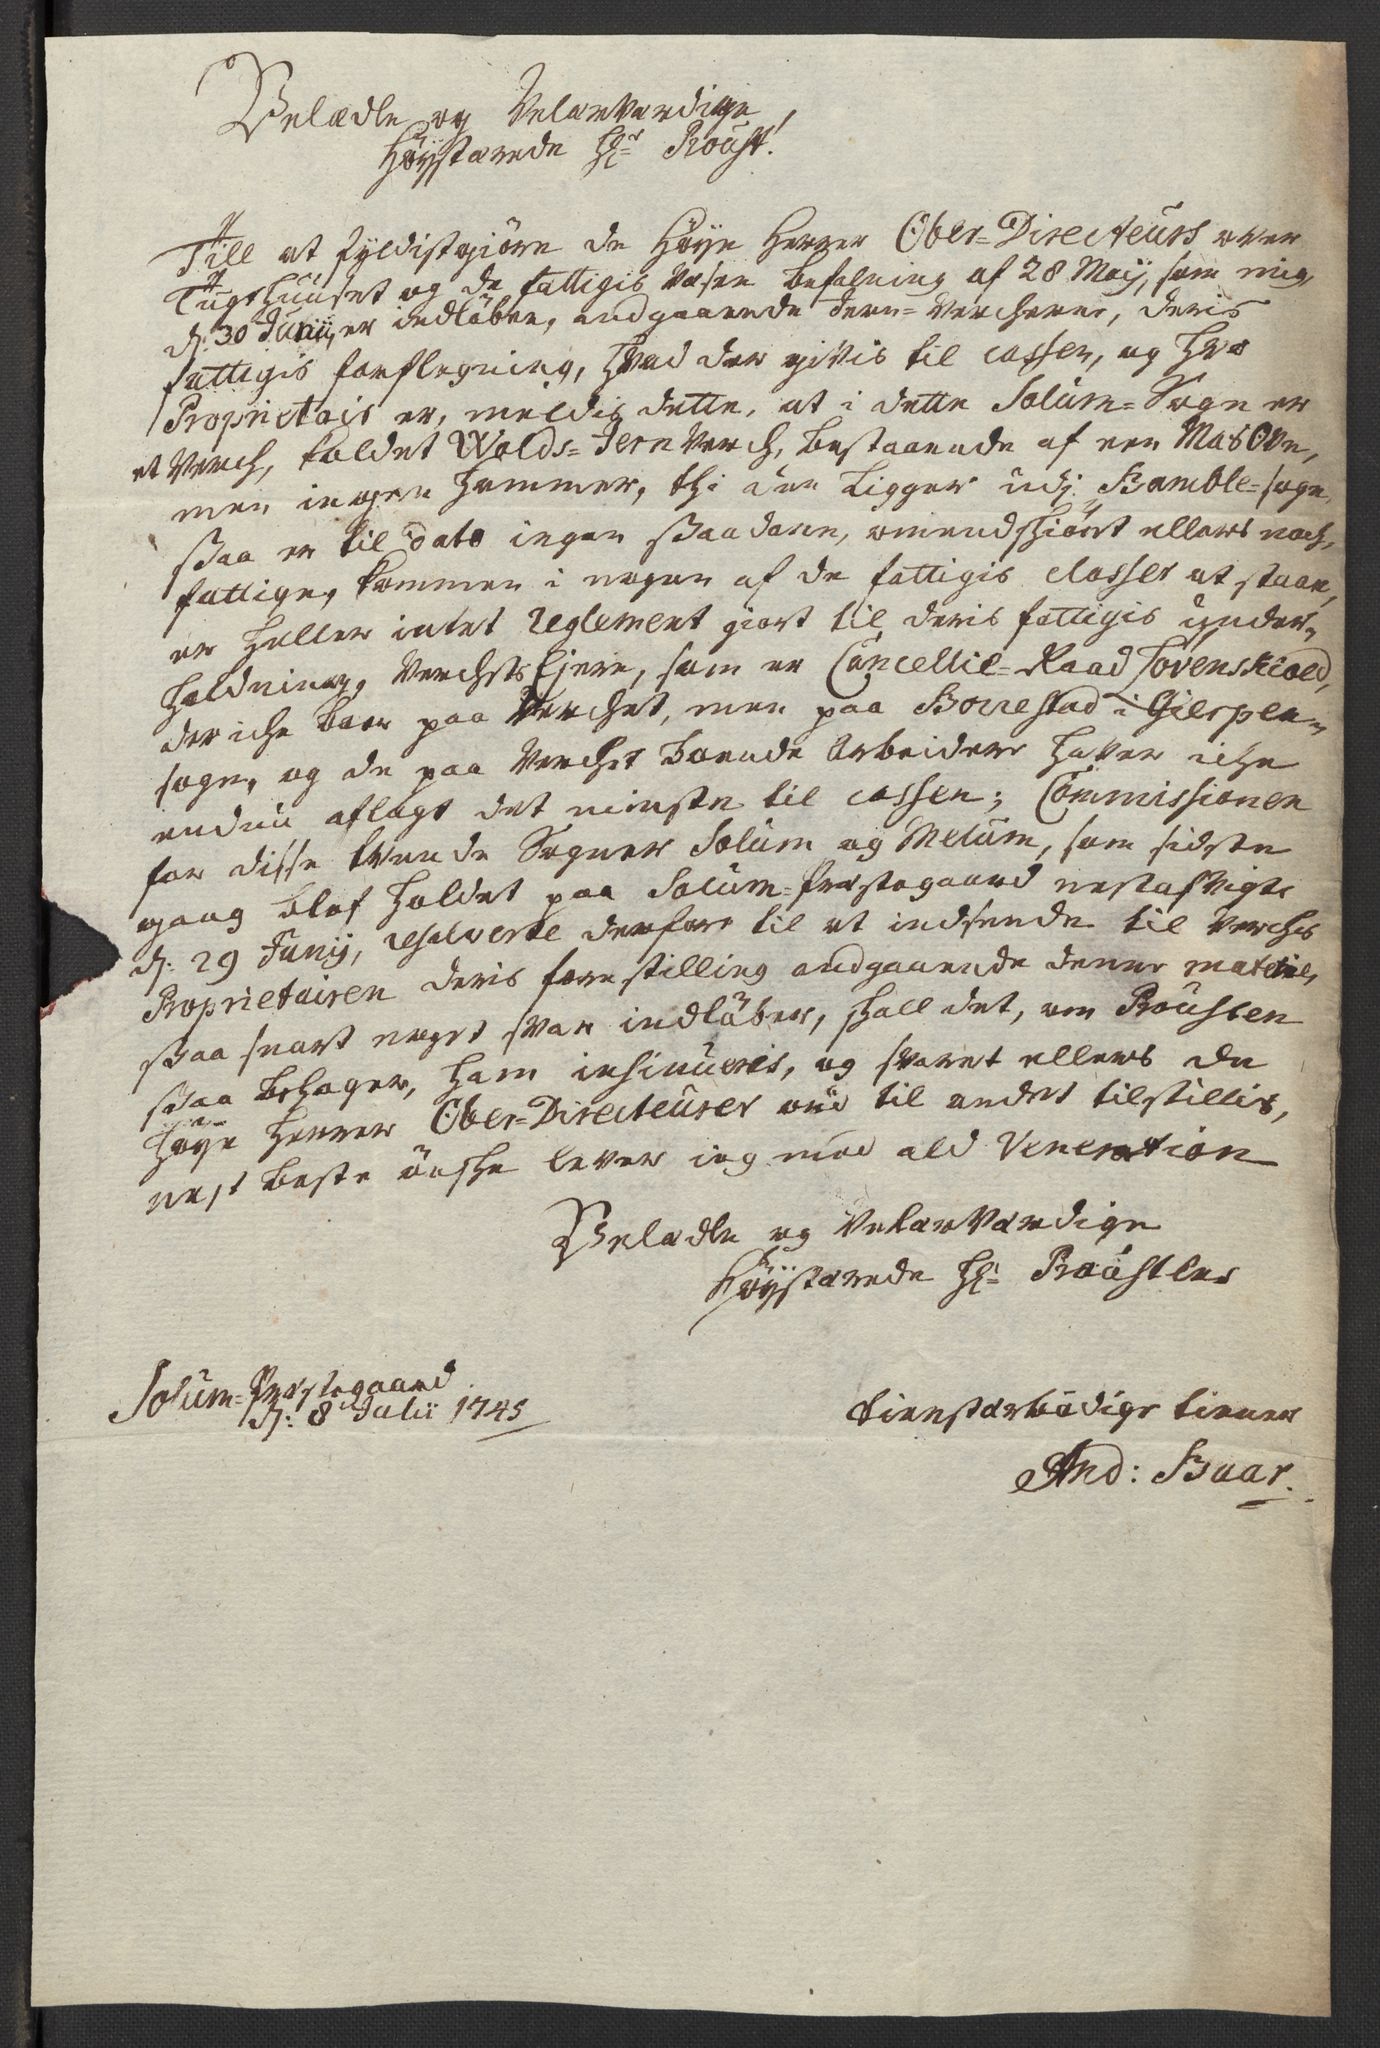 Velædle og Velærværdige,
Høystærede Hr Proust!
Till at fyldistgiöre de Høye Herrer Ober-Directeurs over
Tugthuuset og de fattigis væsen befalning af 28 Maij, som mig
d: 30 Junij, er indløben, andgaaende Jern-Vercherne, deris
fattigis forflegning, hvad der givis til cassen, og hvo
Proprietair er, meldis dette, at i dette Solum-Sogn er
et Verch, kaldet Wolds-Jern Verch, bestaaende af een MasOvn,
men ingen Hammer, thi den ligger udj Bamble-sogn,
saa er til dato ingen saadane, omendskiönt ellers noch
fattige, kommen i nogen af de fattigis classer at staae,
er heller intet Reglement giort til deris fattigis under-
holdning, Verchets Ejere, som er Cancellie-Raad Lövenskiold,
der iche boer paa Verchet, men paa Borrestad i Gierpen-
sogn, og de paa Verchet boende Arbeidere haver iche
endnu aflagt det minste til cassen; Commissionen
for disse tvende Sogner Solum og Melum, som sidste
gang blef holdet paa Solum-Præstegaard nestafvigte
d: 29 Junij, resolverte derfore til at indsende til Verchs
Proprietairen deris forestilling andgaaende denne materie,
saa snart noget svar indløber, skall det, om Prousten
saa behager, ham insinueris, og svaret ellers de
Høye Herrer Ober-Directeurer til andet tilstillis,
nest beste önske lever jeg med ald Veneration
Velædle og Velærværdige
Høystærede Hr Proustes
Solum-Præstegaard
d: 8 Julii 1745
tienstærbødige tiener
And: Baar.